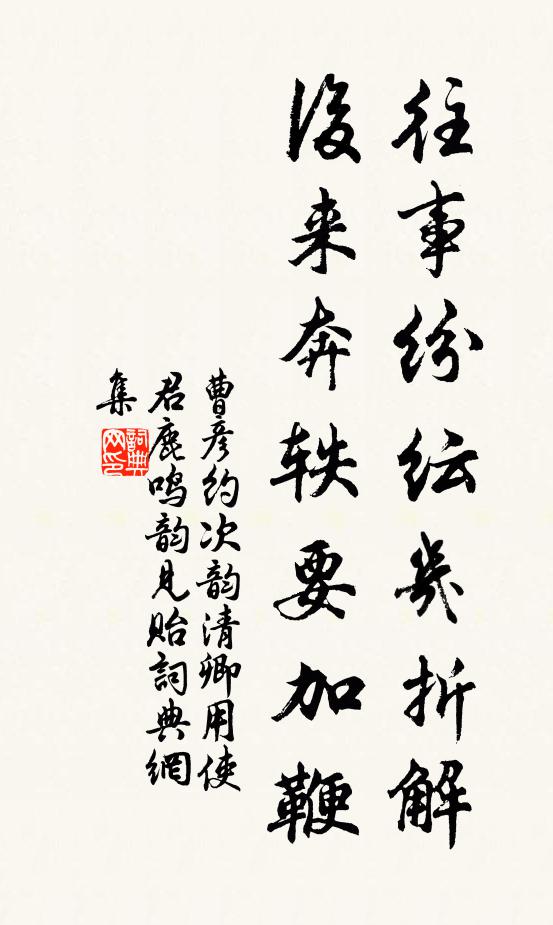 往事纷纭几折解
後来奔轶要加鞭
曹彦约次韵清卿用使
君鹿鸣韵见贻詞典網
集
詞典
网印